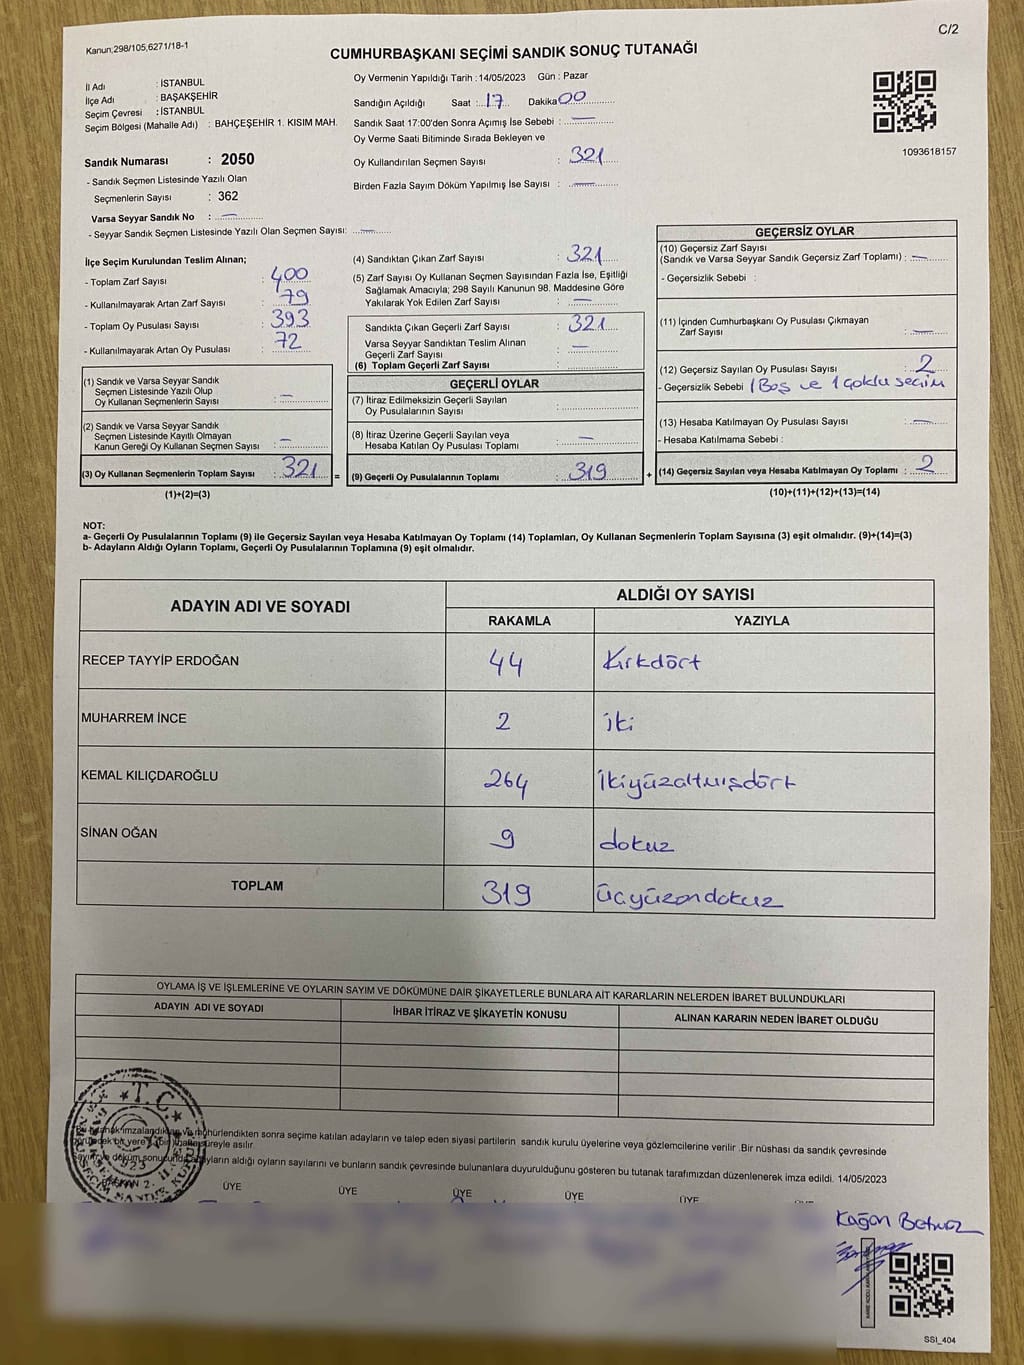 Kanun;298/105,6271/18-1
C/2
CUMHURBAŞKANI SEÇİMİ SANDIK SONUÇ TUTANAĞI
İl Adı : İSTANBUL
İlçe Adı : BAŞAKŞEHİR
Seçim Çevresi : İSTANBUL
Seçim Bölgesi (Mahalle Adı) : BAHÇEŞEHİR 1. KISIM MAH.
Sandık Numarası : 2050
- Sandık Seçmen Listesinde Yazılı Olan
Seçmenlerin Sayısı : 362
Varsa Seyyar Sandık No : —
- Seyyar Sandık Seçmen Listesinde Yazılı Olan Seçmen Sayısı: —
Oy Vermenin Yapıldığı Tarih : 14/05/2023 Gün : Pazar
Sandığın Açıldığı Saat : 17 Dakika 00
Sandık Saat 17:00'den Sonra Açımış İse Sebebi : —
Oy Verme Saati Bitiminde Sırada Bekleyen ve
Oy Kullandırılan Seçmen Sayısı : 321
Birden Fazla Sayım Döküm Yapılmış İse Sayısı : —
1093618157
İlçe Seçim Kurulundan Teslim Alınan;
- Toplam Zarf Sayısı : 400
- Kullanılmayarak Artan Zarf Sayısı : 79
- Toplam Oy Pusulası Sayısı : 393
- Kullanılmayarak Artan Oy Pusulası : 72
(1) Sandık ve Varsa Seyyar Sandık
Seçmen Listesinde Yazılı Olup
Oy Kullanan Seçmenlerin Sayısı : —
(2) Sandık ve Varsa Seyyar Sandık
Seçmen Listesinde Kayıtlı Olmayan
Kanun Gereği Oy Kullanan Seçmen Sayısı : —
(3) Oy Kullanan Seçmenlerin Toplam Sayısı : 321 =
(1)+(2)=(3)
(4) Sandıktan Çıkan Zarf Sayısı : 321
(5) Zarf Sayısı Oy Kullanan Seçmen Sayısından Fazla İse, Eşitliği
Sağlamak Amacıyla; 298 Sayılı Kanunun 98. Maddesine Göre
Yakılarak Yok Edilen Zarf Sayısı : —
Sandıkta Çıkan Geçerli Zarf Sayısı : 321
Varsa Seyyar Sandıktan Teslim Alınan
Geçerli Zarf Sayısı : —
(6) Toplam Geçerli Zarf Sayısı :
GEÇERLİ OYLAR
(7) İtiraz Edilmeksizin Geçerli Sayılan
Oy Pusulalarının Sayısı :
(8) İtiraz Üzerine Geçerli Sayılan veya
Hesaba Katılan Oy Pusulası Toplamı : —
(9) Geçerli Oy Pusulalarının Toplamı : 319 +
GEÇERSİZ OYLAR
(10) Geçersiz Zarf Sayısı
(Sandık ve Varsa Seyyar Sandık Geçersiz Zarf Toplamı) : —
- Geçersizlik Sebebi :
(11) İçinden Cumhurbaşkanı Oy Pusulası Çıkmayan
Zarf Sayısı : —
(12) Geçersiz Sayılan Oy Pusulası Sayısı : 2
- Geçersizlik Sebebi 1 Boş ve 1 çoklu seçim
(13) Hesaba Katılmayan Oy Pusulası Sayısı : —
- Hesaba Katılmama Sebebi :
(14) Geçersiz Sayılan veya Hesaba Katılmayan Oy Toplamı : 2
(10)+(11)+(12)+(13)=(14)
NOT:
a- Geçerli Oy Pusulalarının Toplamı (9) ile Geçersiz Sayılan veya Hesaba Katılmayan Oy Toplamı (14) Toplamları, Oy Kullanan Seçmenlerin Toplam Sayısına (3) eşit olmalıdır. (9)+(14)=(3)
b- Adayların Aldığı Oyların Toplamı, Geçerli Oy Pusulalarının Toplamına (9) eşit olmalıdır.
ADAYIN ADI VE SOYADI
ALDIĞI OY SAYISI
RAKAMLA YAZIYLA
RECEP TAYYİP ERDOĞAN 44 Kırkdört
MUHARREM İNCE 2 iki
KEMAL KILIÇDAROĞLU 264 ikiyüzaltmışdört
SİNAN OĞAN 9 dokuz
TOPLAM 319 üçyüzondokuz
OYLAMA İŞ VE İŞLEMLERİNE VE OYLARIN SAYIM VE DÖKÜMÜNE DAİR ŞİKAYETLERLE BUNLARA AİT KARARLARIN NELERDEN İBARET BULUNDUKLARI
ADAYIN ADI VE SOYADI İHBAR İTİRAZ VE ŞİKAYETİN KONUSU ALINAN KARARIN NEDEN İBARET OLDUĞU
T.C.
mühürlendikten sonra seçime katılan adayların ve talep eden siyasi partilerin sandık kurulu üyelerine veya gözlemcilerine verilir. Bir nüshası da sandık çevresinde
süreyle asılır.
aldığı oyların sayılarını ve bunların sandık çevresinde bulunanlara duyurulduğunu gösteren bu tutanak tarafımızdan düzenlenerek imza edildi. 14/05/2023
ÜYE ÜYE ÜYE ÜYE ÜYE
Kağan
SSI_404